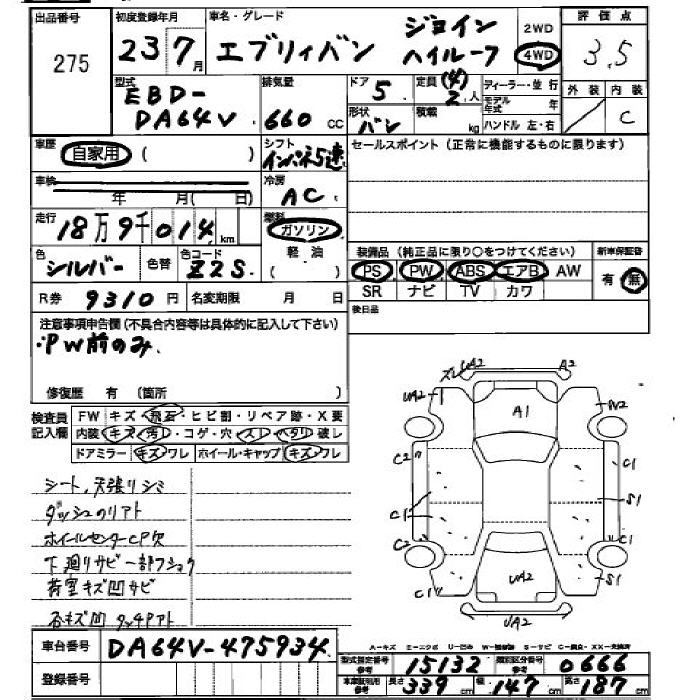 出品番号 初度登録年月 車名・グレード 評価点
275 23 7月 エブリィバン ジョイン ハイルーフ 2WD 4WD 3.5
型式 排気量 ドア 定員 ディーラー・並行 外装 内装
EBD-DA64V 660 CC 5 (4) 2人 モデル年式 年 C
形状 バン 積載 kg ハンドル 左・右
車歴 自家用 ( ) シフト インパネ5速 セールスポイント(正常に機能するものに限ります)
車検 年 月( 日) 冷房 AC
走行 18万9千014km 燃料 ガソリン
色 シルバー 色替 色コード Z2S 軽油 装備品(純正品に限り○をつけてください) 新車保証書
PS PW ABS エアB AW 有 無
R券 9310円 名変期限 月 日 SR ナビ TV カワ
注意事項申告欄(不具合内容等は具体的に記入して下さい) 後日品
・PW前のみ
修復歴 有 (箇所 )
検査員記入欄 FW キズ・飛石・ヒビ割・リペア跡・X要
内装 キズ・汚レ・コゲ・穴・スレ・ヘタリ・破レ
ドアミラー キズ・ワレ ホイール・キャップ キズ・ワレ
UA2 A2
UA2 A1 W2
C2 C1
C1 S1
C2
C1 UA2 S1
UA2
シート、天張りシミ
ダッシュのリアト
ホイールセンターCP欠
下廻りサビ 一部フショク
荷室キズ凹サビ
各キズ凹 タッチPアト
A-キズ E-エクボ U-凹み S-サビ
車台番号 DA64V-475934 型式指定番号 参考 15132 類別区分番号 参考 0666
登録番号 車輌数引用 参考 長さ 339cm 幅 147cm 高さ 187cm